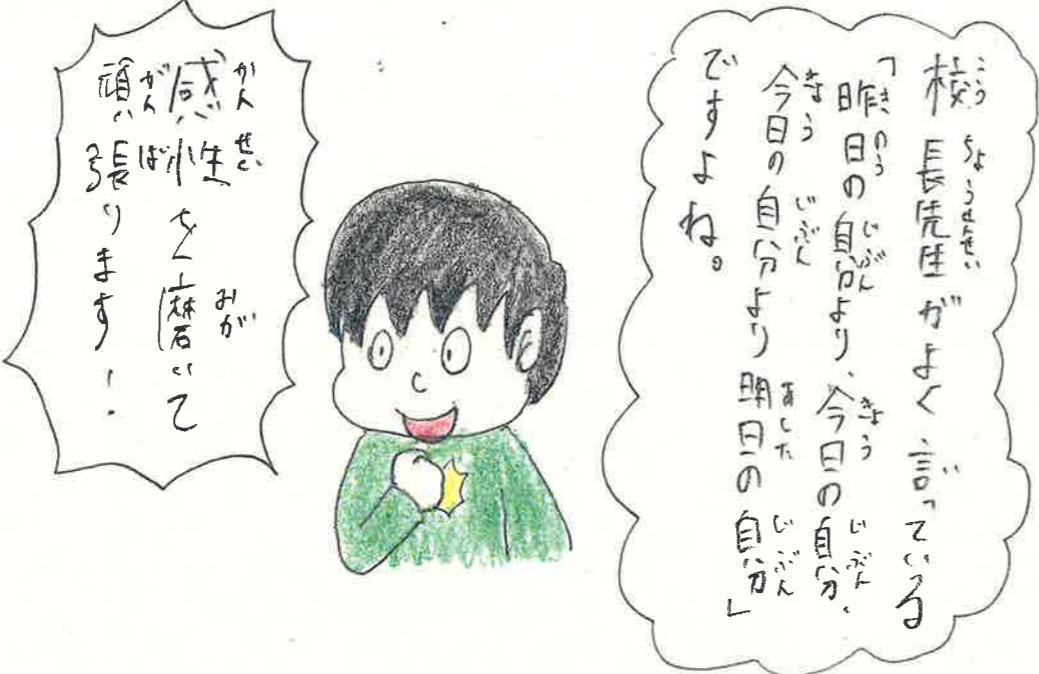 校長先生がよく言っている
「昨日の自分より、今日の自分、
今日の自分より明日の自分」
ですよね。
感性を磨いて
頑張ります!